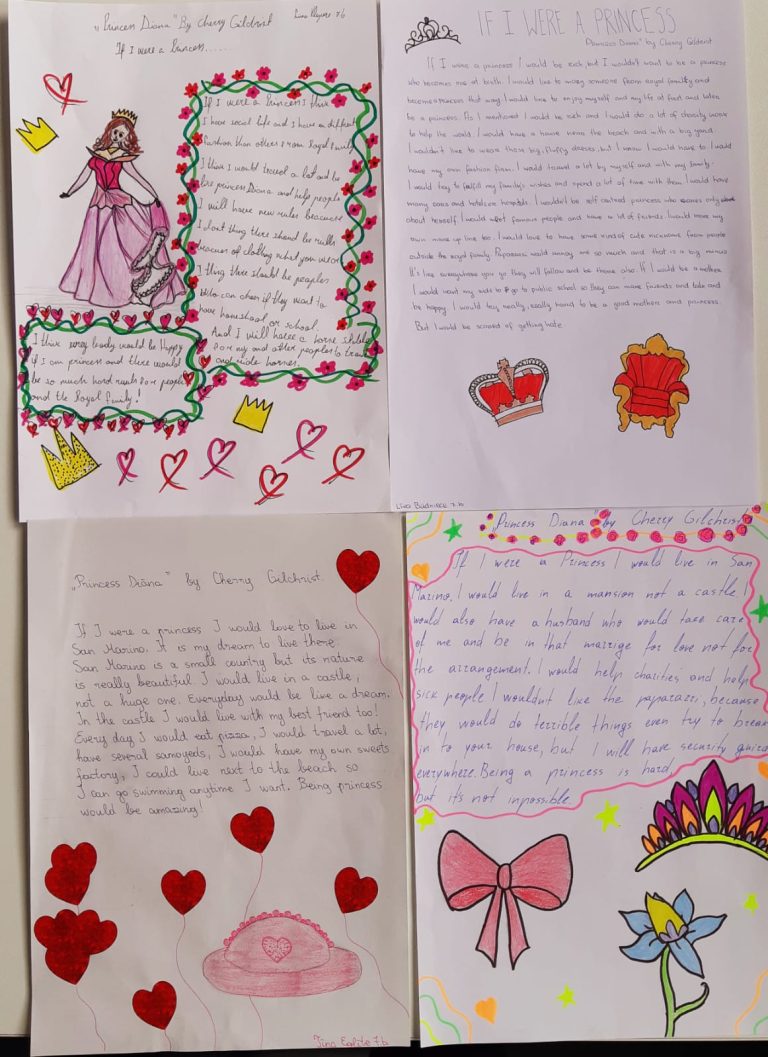 „Princess Diana" By Cherry Gilchrist
7.b
If I were a Princess......
If I were a Princess I think
I have social life and I have a different
fashion than others from Royal family.
I think I would travel a lot and be
like princess Diana and help people
I will have new rules because
I don't thing there should be rulls
of clothing what you wear
I thing there should be peoples
who can chen if they want to
have homeshool or school.
And I will have a horse stable
for my and other peoples to train
and ride horses.
I think very body would be Happy
if I am princess and there would
be so much hard rules for people
and the Royal family!
IF I WERE A PRINCESS
"Princess Diana" by Cherry Gilchrist
If I were a princess I would be rich but I wouldn't want to be a princess
who becomes one at birth. I would like to marry someone from royal family and
become princess that way. I would like to enjoy myself and my life at first and later
be a princess. As I mentioned I would be rich and I would do a lot of charity work
to help the world. I would have a home near the beach and with a big yard.
I wouldn't like to wear those big, fluffy dresses, but I know I would have to. I would
have my own fashion firm. I would travel a lot by myself and with my family.
I would try to fulfill my family's wishes and spend a lot of time with them. I would have
many cars and hospitals. I wouldn't be self centred princess who cares only
about herself. I would meet famous people and have a lot of friends. I would have my
own make up line too. I would love to have some kind of cute nickname from people
outside the royal family. Paparazzi would annoy me so much and that is a big minus.
It's like everywhere you go they will follow and be there also. If I would be a mother
I would want my kids to go to public school so they can make friends and
be happy. I would try really, really hard to be a good mother and princess.
But I would be scared of getting hate.
7.b
„Princess Diāna" by Cherry Gilchrist.
If I were a princess I would love to live in
San Marino. It is my dream to live there.
San Marino is a small country but its nature
is really beautiful. I would live in a castle,
not a huge one. Everyday would be live a dream.
In the castle I would live with my best friend too!
Every day I would eat pizza, I would travel a lot,
have several samoyeds, I would have my own sweets
factory, I could live next to the beach so
I can go swimming anytime I want. Being princess
would be amazing!
7.b
„Princess Diana" by Cherry Gilchrist
If I were a Princess I would live in San
Marino. I would live in a mansion not a castle. I
would also have a husband who would take care
of me and be in that marrige for love not for
the arrangement. I would help charities and help
sick people. I wouldn't like the paparazzi, because
they would do terrible things even try to break
in to your house, but I will have security guard
everywhere. Being a princess is hard,
but it's not impossible.